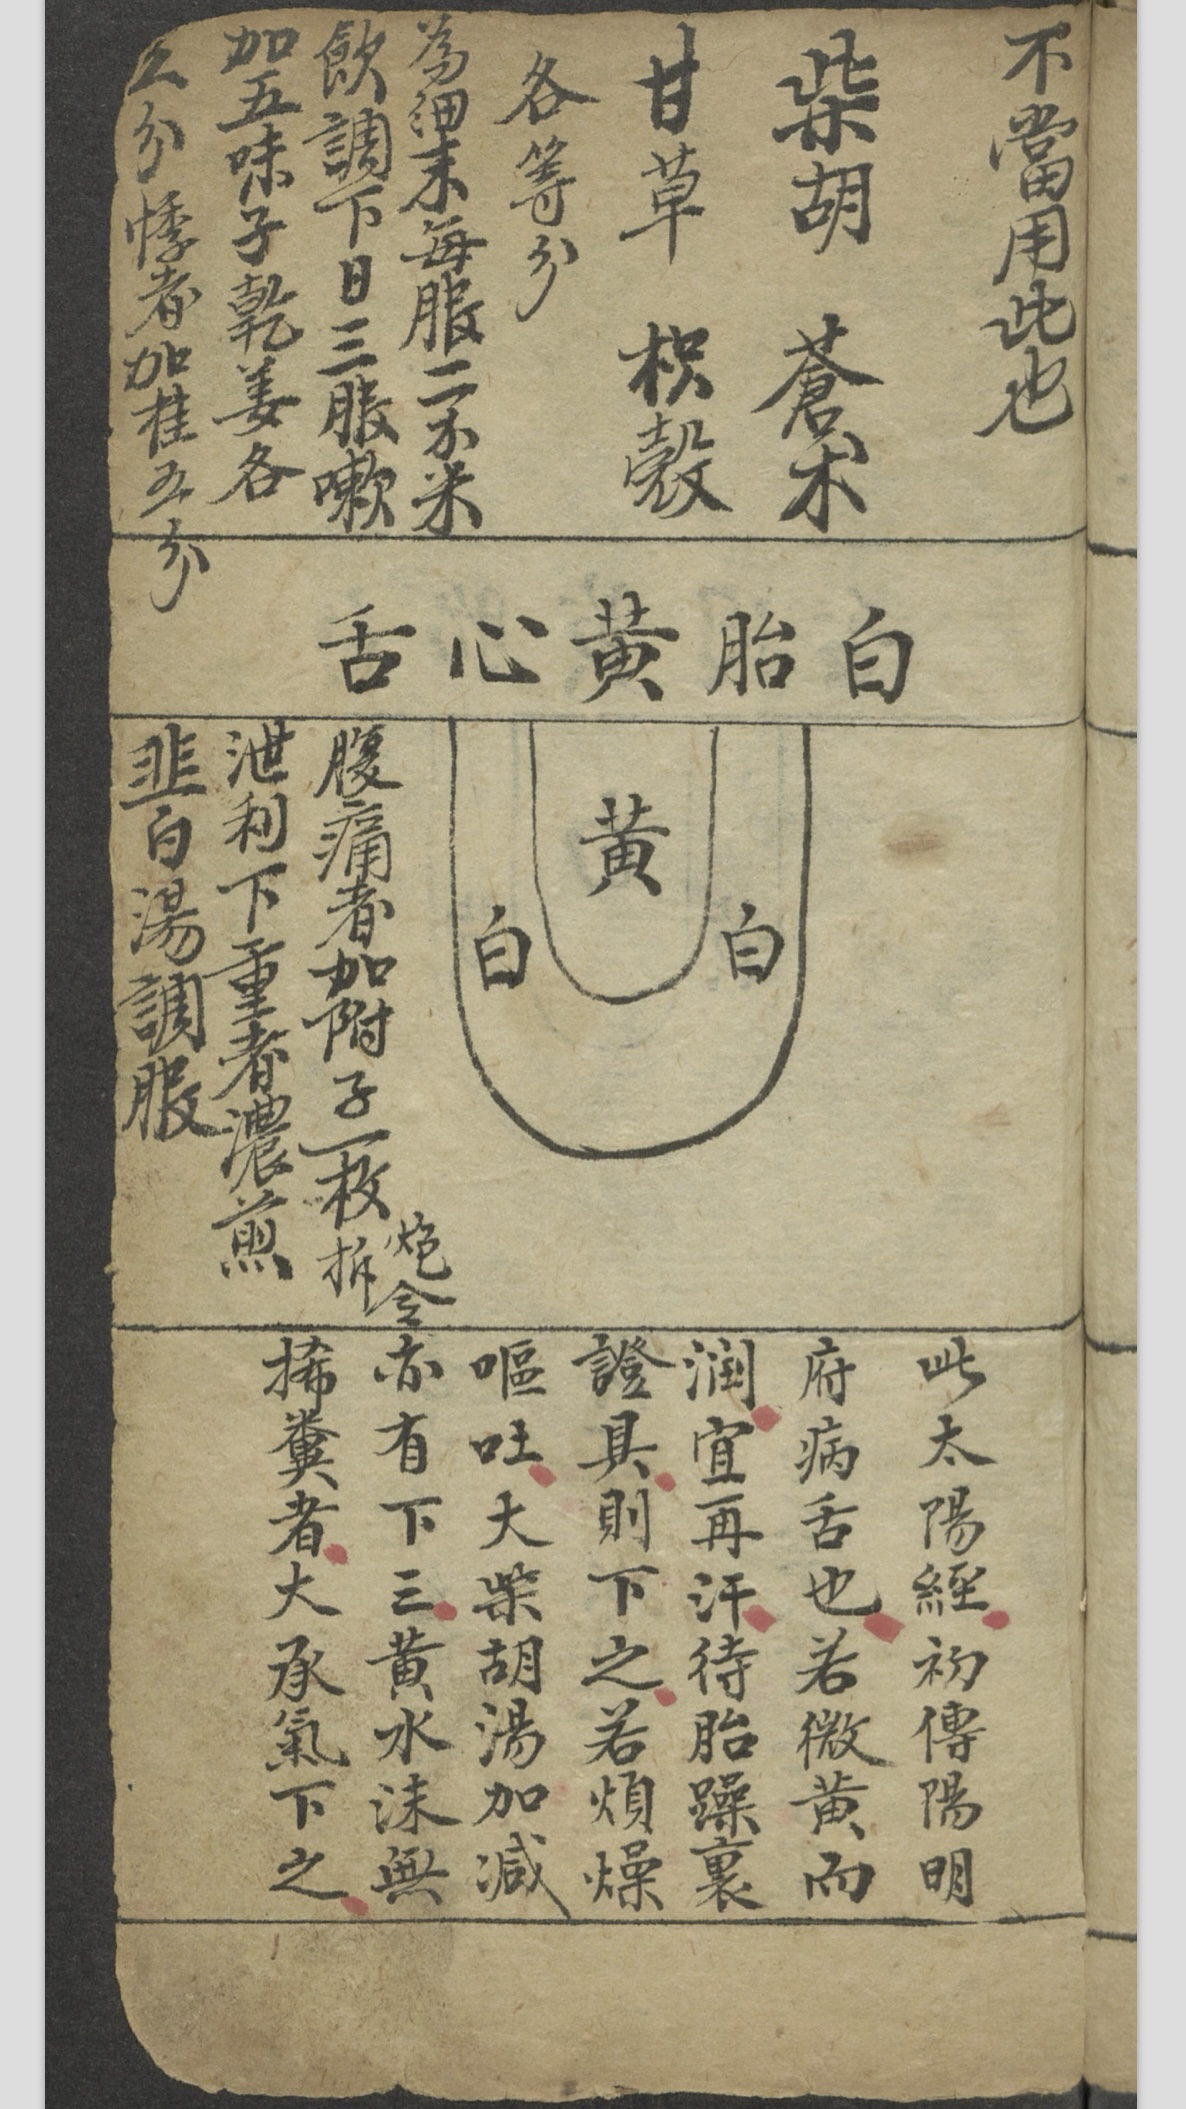 不當用此也
柴胡 蒼术
甘草 枳殼
各等分
為細末每服二不米
飲調下日三服嗽
加五味子乾姜各
五分悸者加桂五分
白胎黃心舌
黃
白
白
腹痛者加附子一枚炮令拆
泄利下重者濃煎
韭白湯調服
此太陽經初傳陽明
府病舌也若微黃而
潤宜再汗待胎躁裏
證具則下之若煩燥
嘔吐大柴胡湯加減
亦有下三黃水沫無
㧊糞者大承氣下之